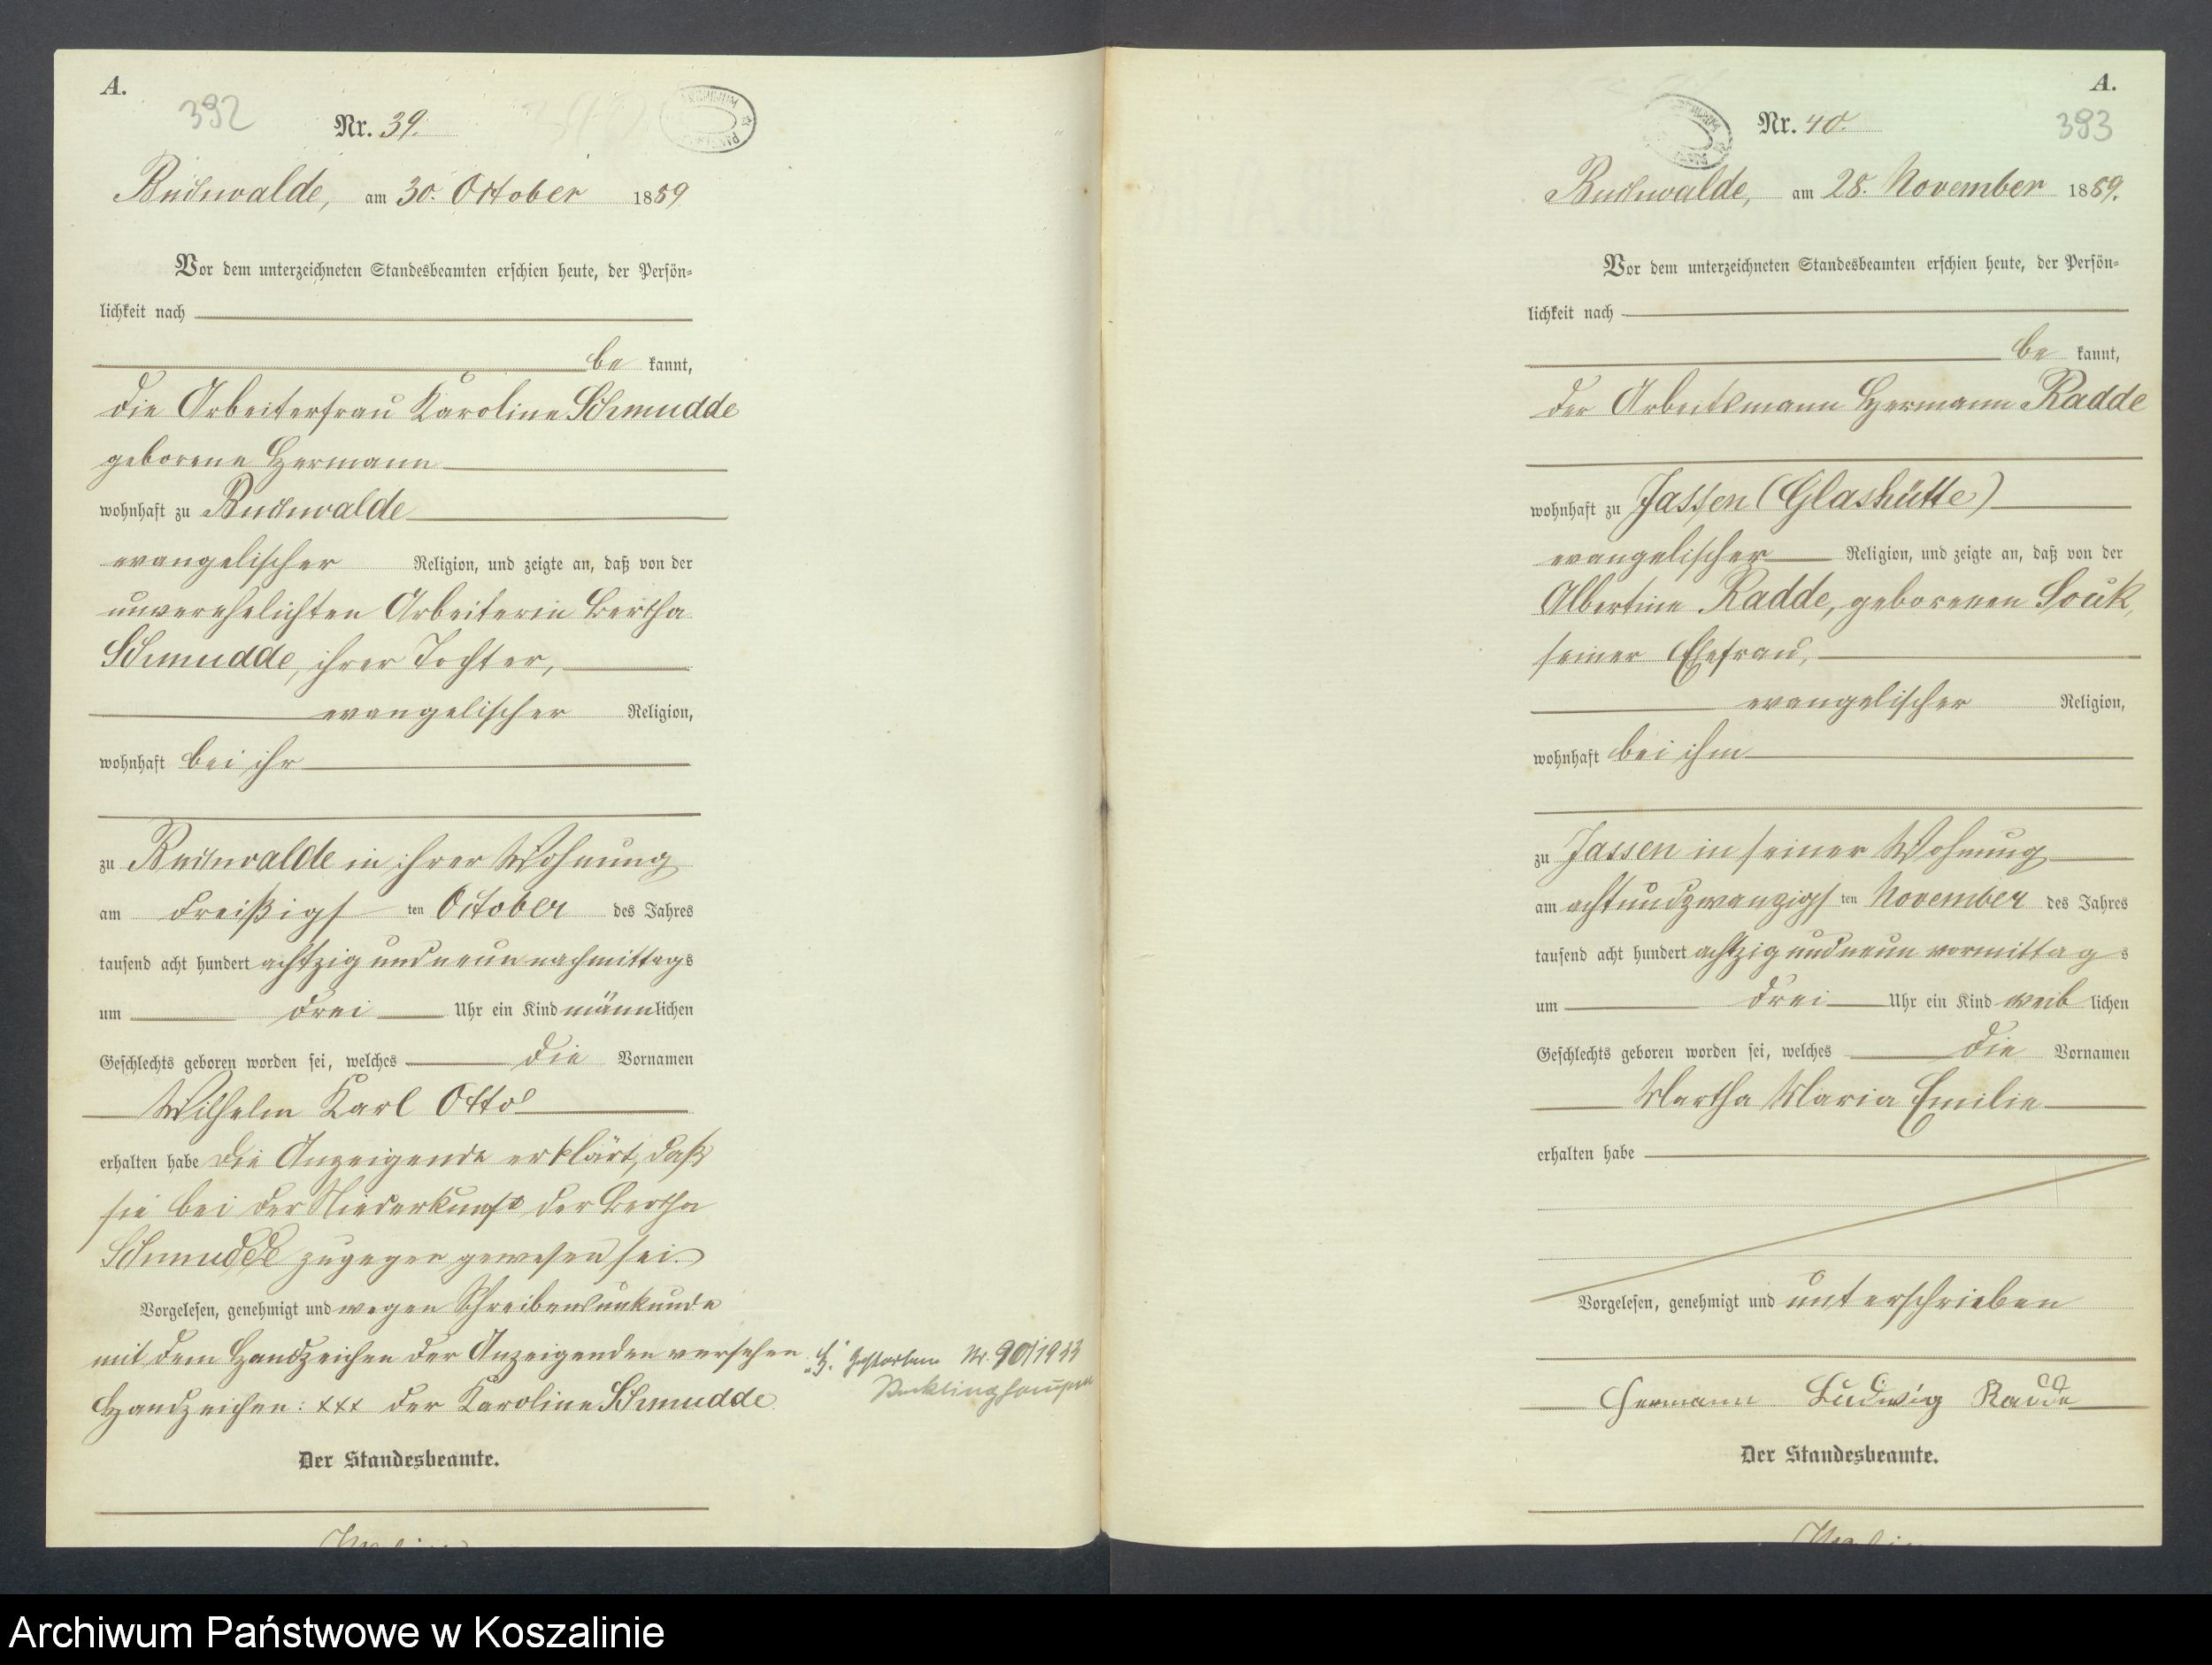 A.
392
Nr. 39.
Buchwalde, am 30. October 1889
Vor dem unterzeichneten Standesbeamten erschien heute, der Persön-
lichkeit nach
be kannt,
die Arbeiterfrau Karoline Schmudde
geborene Hermann
wohnhaft zu Buchwalde
evangelischer Religion, und zeigte an, daß von der
unverehelichten Arbeiterin Bertha
Schmudde, ihrer Tochter,
evangelischer Religion,
wohnhaft bei ihr
zu Buchwalde in ihrer Wohnung
am dreißigs ten October des Jahres
tausend acht hundert achtzig und neun nachmittags
um drei Uhr ein Kind männlichen
Geschlechts geboren worden sei, welches die Vornamen
Wilhelm Karl Otto
erhalten habe die Anzeigende erklärt, daß
sie bei der Niederkunft der Bertha
Schmudde zugegen gewesen sei.
Vorgelesen, genehmigt und wegen Schreibensunkunde
mit dem Handzeichen der Anzeigenden versehen.
Handzeichen: xxx der Karoline Schmudde
Der Standesbeamte.
Gestorben Nr. 90/1933
Recklinghausen
A.
393
Nr. 40.
Buchwalde, am 28. November 1889.
Vor dem unterzeichneten Standesbeamten erschien heute, der Persön-
lichkeit nach
be kannt,
der Arbeitsmann Hermann Radde
wohnhaft zu Jassen (Glashütte)
evangelischer Religion, und zeigte an, daß von der
Albertine Radde, geborenen Souk,
seiner Ehefrau,
evangelischer Religion,
wohnhaft bei ihm
zu Jassen in seiner Wohnung
am achtundzwanzigs ten November des Jahres
tausend acht hundert achtzig und neun vormittag s
um drei Uhr ein Kind weib lichen
Geschlechts geboren worden sei, welches die Vornamen
Martha Maria Emilie
erhalten habe
Vorgelesen, genehmigt und unterschrieben
Hermann Ludwig Radde
Der Standesbeamte.
Archiwum Państwowe w Koszalinie